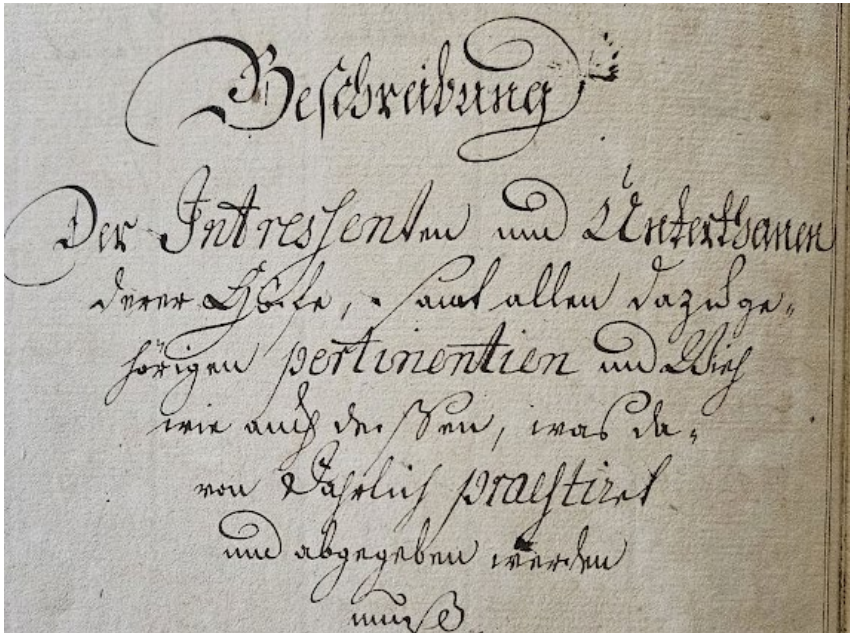 Beschreibung
Der Intressenten und Unterthanen
derer Höfe, samt allen dazu ge-
hörigen pertinentien und Vieh
wie auch dessen, was da-
von Jährlich praestiret
und abgegeben werden
muß